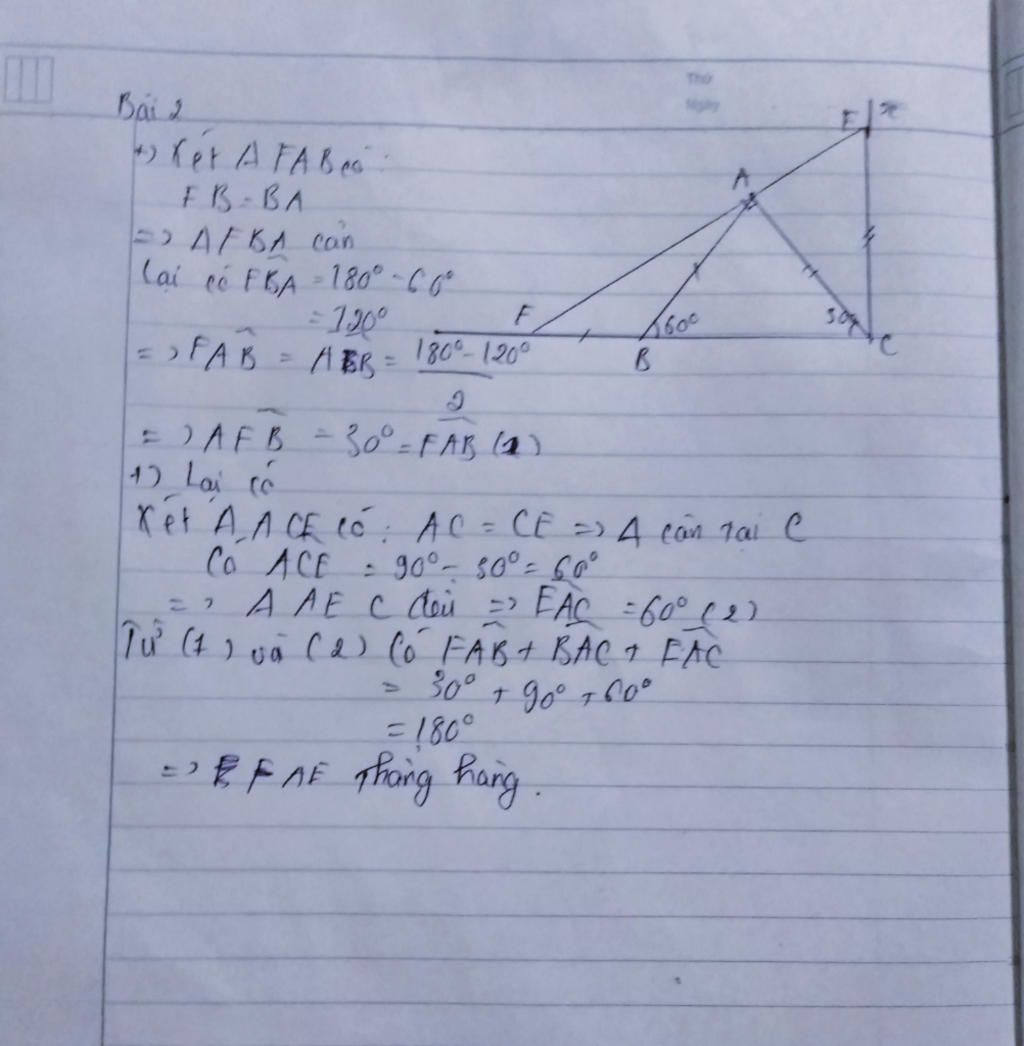 Thứ
Ngày
Bài 2
+) Xét Δ FAB có:
FB = BA
=> Δ FBA cân
Lại có FB̂A = 180° - 60°
= 120°
=> FAB̂ = AFB = (180° - 120°)/2
=> AFB̂ = 30° = FAB̂ (1)
+) Lại có
Xét Δ ACE có: AC = CE => Δ cân tại C
Có ACE = 90° - 30° = 60°
=> Δ AEC đều => EAĈ = 60° (2)
Từ (1) và (2) Có FAB̂ + BAĈ + EAĈ
= 30° + 90° + 60°
= 180°
=> F AE thẳng hàng.
E x
A
F B C
60° 30°